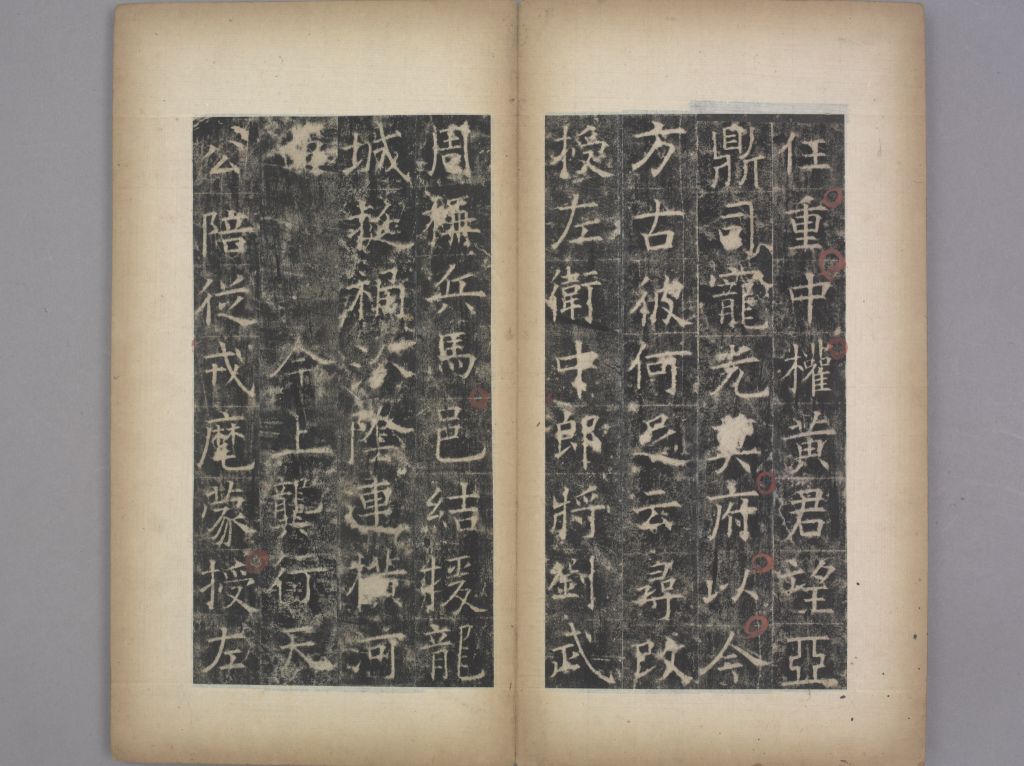 任重中權黃君望亞
鼎司寵光莫府以今
方古彼何足云尋改
授左衛中郎將劉武
周稱兵馬邑結援龍
城挻禍汾陰連橫河
今上龔行天
公陪從戎麾蒙授左